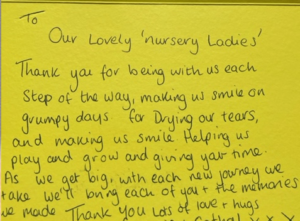 To
Our Lovely 'nursery Ladies'
Thank you for being with us each
Step of the way, making us smile on
grumpy days for Drying our tears,
and making us smile Helping us
play and grow and giving your time.
As we get big, with each new journey we
take we'll bring each of you + the memories
we made Thank you Lots of love + hugs